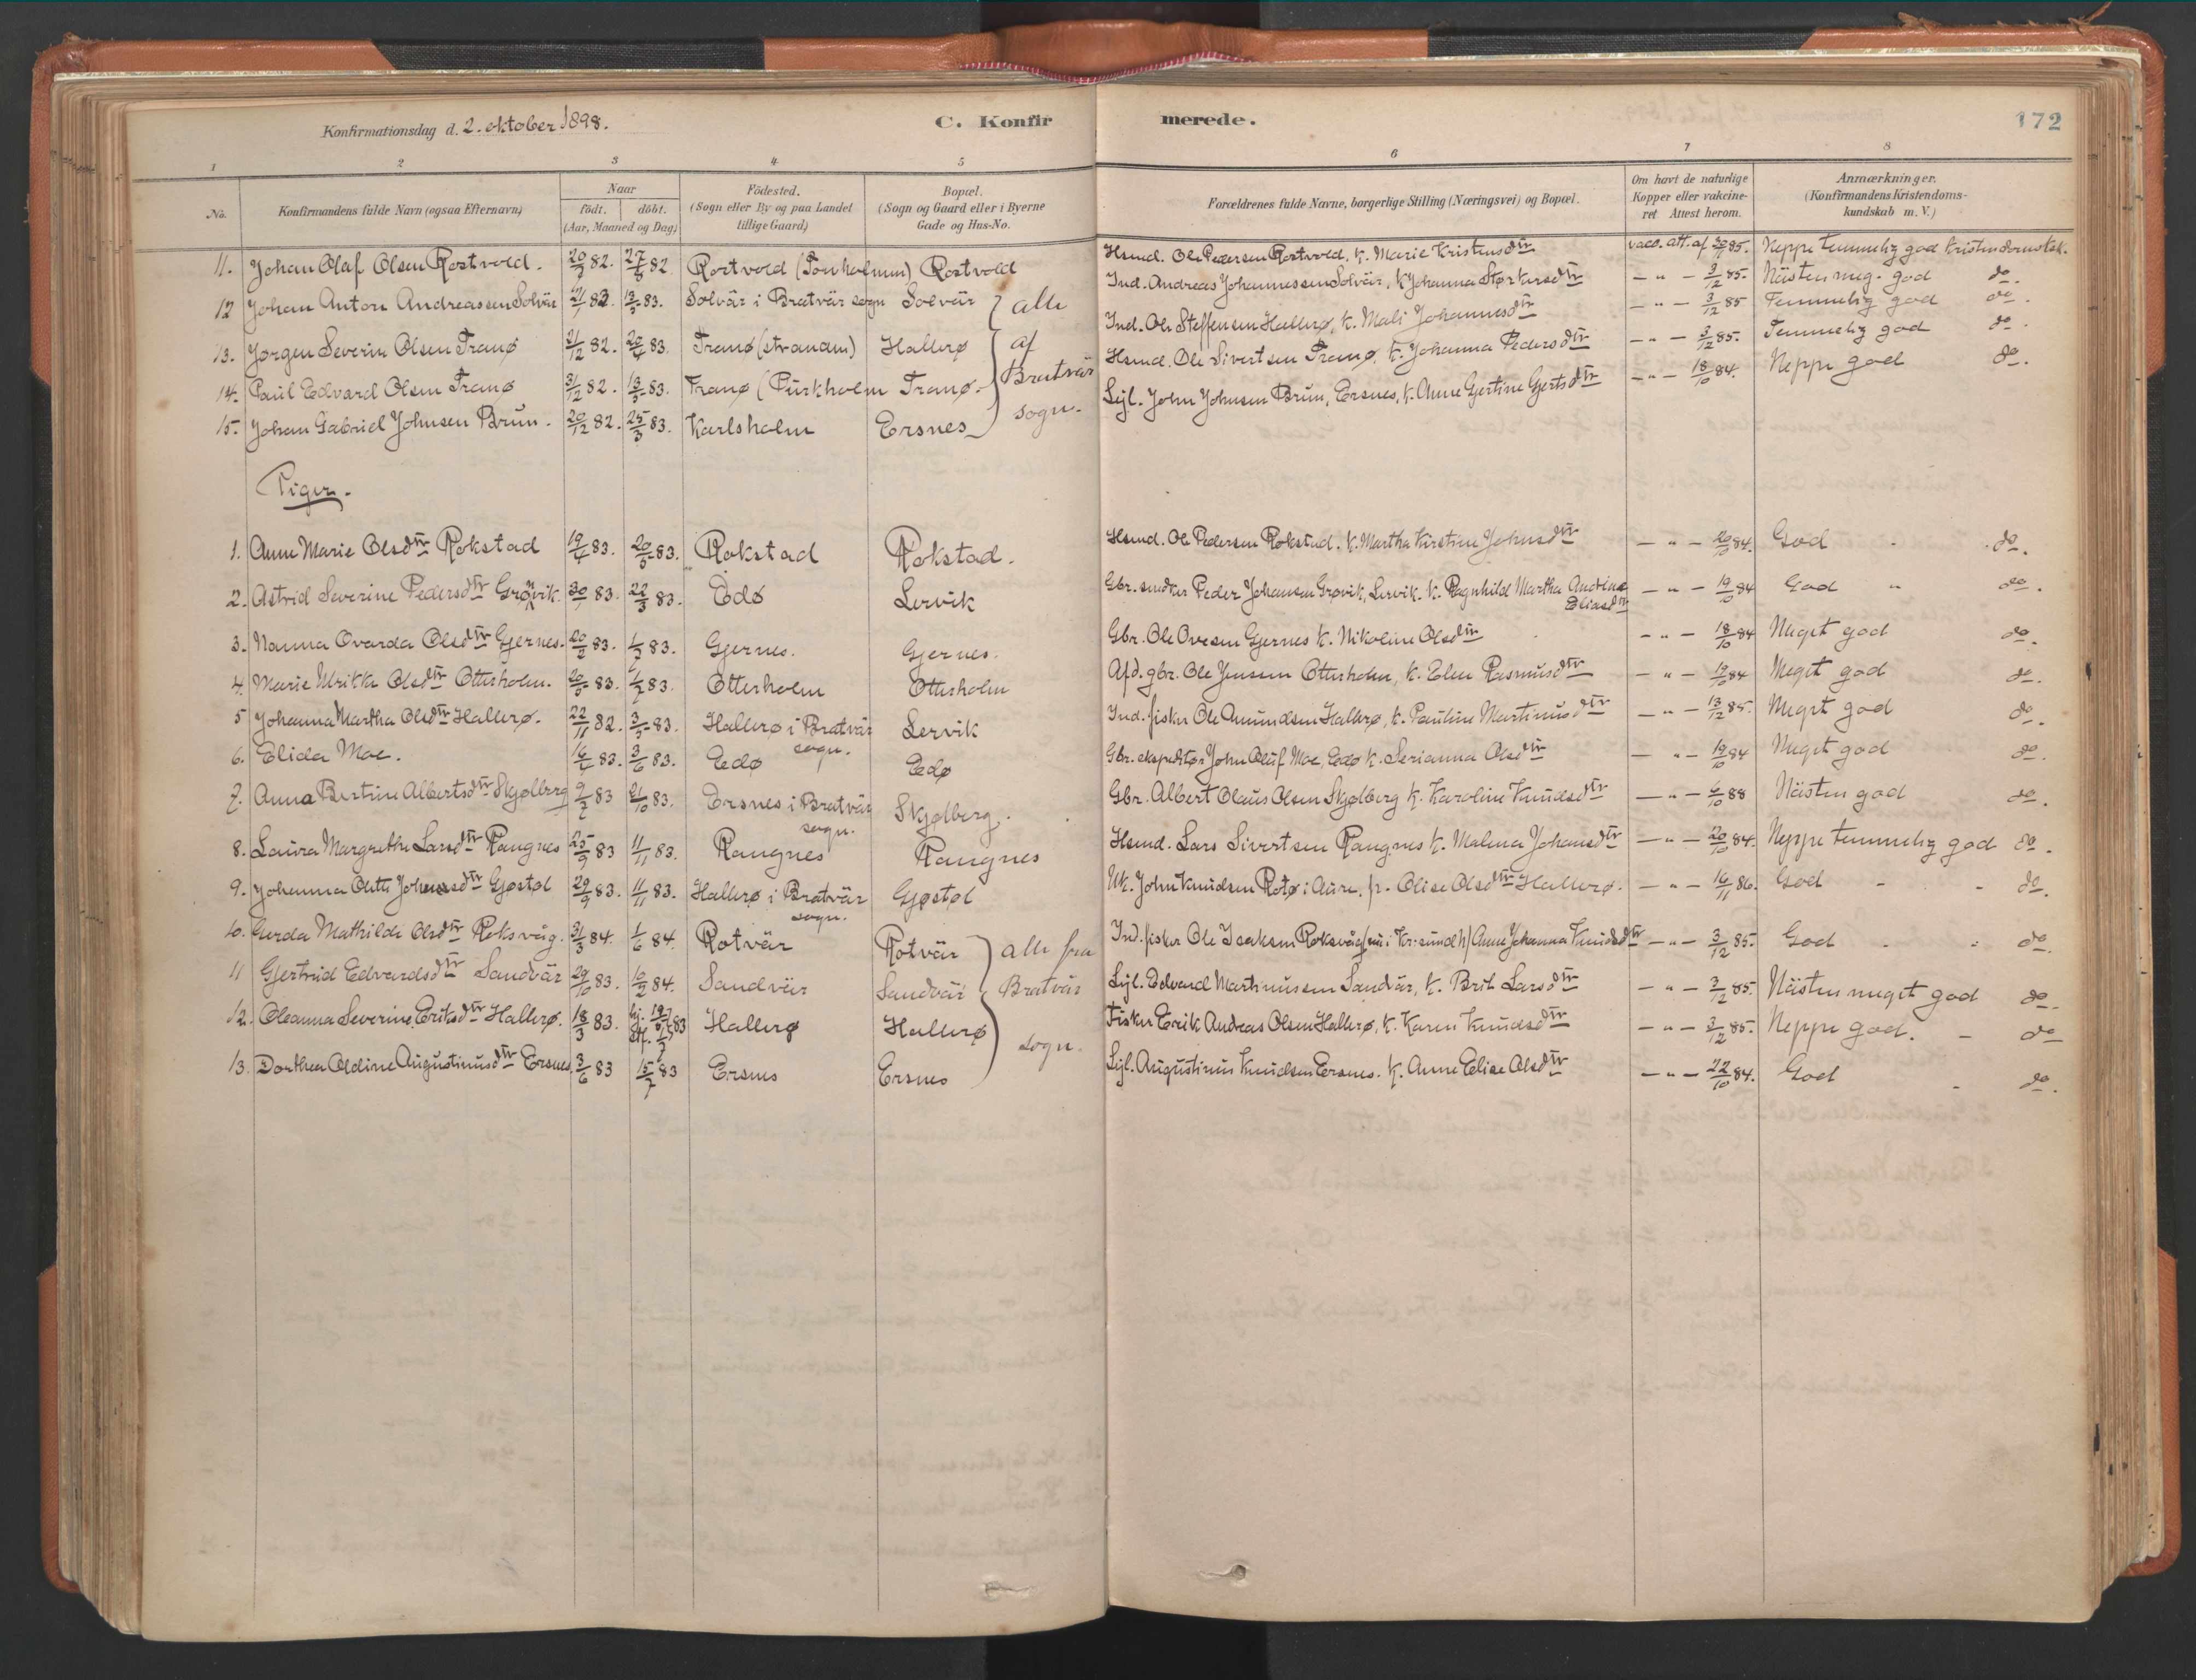 Konfirmationsdag d. 2. oktober 1898.
C. Konfirmerede.
172
1 2 3 4 5 6 7 8
No.
Konfirmandens fulde Navn (ogsaa Efternavn)
Naar
födt. döbt.
(Aar, Maaned og Dag)
Födested.
(Sogn eller By og paa Landet
tillige Gaard)
Bopæl.
(Sogn og Gaard eller i Byerne
Gade og Hus-No.
Forældrenes fulde Navne, borgerlige Stilling (Næringsvei) og Bopæl.
Om havt de naturlige
Kopper eller vakcine-
ret Attest herom.
Anmærkninger.
(Konfirmandens Kristendoms-
kundskab m. V.)
11. Johan Olaf Olsen Rostvold. 82. 82. Rostvold Rostvold Hsmd. Ole Pedersen Rostvold, k. Marie Kristensdtr vacc. att. af 85. Neppe temmelig god
12 Johan Anton Andreassen Solvär 83. 13/5 83. Solvär i Bratvär sogn Solvär Ind. Andreas Johannessen Solvär, k. Johanna Størkersdtr — " — 3/12 85. Nästen meg. god do.
13. Jørgen Severin Olsen Tranø 31/12 82. 20/4 83. Tranø (stranden) Hallerø Ind. Ole Steffensen Hallerø, k. Mali Johannesdtr — " — 3/12 85 Temmelig god do.
14. Paul Edvard Olsen Tranø 31/12 82. 13/5 83. Tranø (Purkholm Tranø. Hsmd. Ole Sivertsen Tranø, k. Johanna Pedersdtr — " — 3/12 85. Temmelig god do.
15. Johan Gabriel Johnsen Brun. 20/12 82. 25/3 83. Karlsholm Ersnes Johnsen Brun, Ersnes, k. Anne Gjertine Gjertsdtr — " — 18/10 84. Neppe god do.
alle
af
Bratvär
sogn.
Piger.
1. Anne Marie Olsdtr Rokstad 19/4 83. 20/5 83. Rokstad Rokstad. Hsmd. Ole Pedersen Rokstad. k. Martha Kirstine Johnsdtr — " — 20/10 84. God do.
2. Astrid Severine Pedersdtr Grøvik. 83. 22/3 83. Edø Lervik Gbr. Peder Johansen Grøvik, Lervik. k. Ragnhild Martha Andrine
Eliasdtr — " — 19/10 84 God " do.
3. Nanna Ovarda Olsdtr Gjernes. 20/2 83. 83. Gjernes. Gjernes. Gbr. Ole Ovesen Gjernes k. Nikoline Olsdtr — " — 18/10 84 Meget god do.
4. Marie Olsdtr Otterholm. 20/5 83. 1/7 83. Otterholm Otterholm Afd. gbr. Ole Jensen Otterholm, k. Elen Rasmusdtr — " — 19/10 84 Meget god do.
5 Johanna Martha Olsdtr Hallerø. 22/11 82. 3/5 83. Hallerø i Bratvär
sogn. Lervik Ind. fisker Ole Amundsen Hallerø, k. Pauline Martinusdtr — " — 13/12 85. Meget god do.
6. Elida Moe. 83. 3/6 83. Edø Edø Gbr. ekspeditør John Oluf Moe, Edø k. Serianna Olsdtr — " — 19/10 84 Meget god do.
7. Anna Bertine Albertsdtr Skjølberg 9/7 83 21/10 83. Ersnes i Bratvär
sogn. Skjølberg. Gbr. Albert Olaus Olsen Skjølberg k. Karoline Knudsdtr — " — 6/10 88 Nästen god do.
8. Laura Margrethe Larsdtr Rangnes 25/9 83 11/11 83. Rangnes Rangnes Hsmd. Lars Sivertsen Rangnes k. Malena Johansdtr — " — 20/10 84. Neppe temmelig god do.
9. Johanna Olette Johnsdtr Gjøstøl 29/9 83. 11/11 83. Hallerø i Bratvär
sogn. Gjøstøl Uk. John Knudsen Rotø i Aure. p. Elise Olsdtr Hallerø. — " — 16/11 86. God do.
10. Gerda Mathilde Olsdtr Roksvåg. 31/3 84. 1/6 84. Rotvär Rotvär Ind. fisker Ole Isaksen Roksvåg (nu i Kr.sund N) Anne Johanna Knudsdtr — " — 3/12 85. God do.
11 Gjertrud Edvardsdtr Sandvär 29/10 83. 10/2 84. Sandvär Sandvär Edvard Martinussen Sandvär, k. Brit Larsdtr — " — 3/12 85. Nästen meget god do.
12. Oleanna Severine Eriksdtr Hallerø. 18/3 83. 83 Hallerø Hallerø Fisker Erik Andreas Olsen Hallerø, k. Karen Knudsdtr — " — 3/12 85. Neppe god. do
13. Dorthea Oldine Augustinusdtr Ersnes 3/6 83 15/7 83 Ersnes Ersnes Augustinus Knudsen Ersnes. k. Anne Elise Olsdtr — " — 22/10 84. God do.
alle fra
Bratvär
sogn.